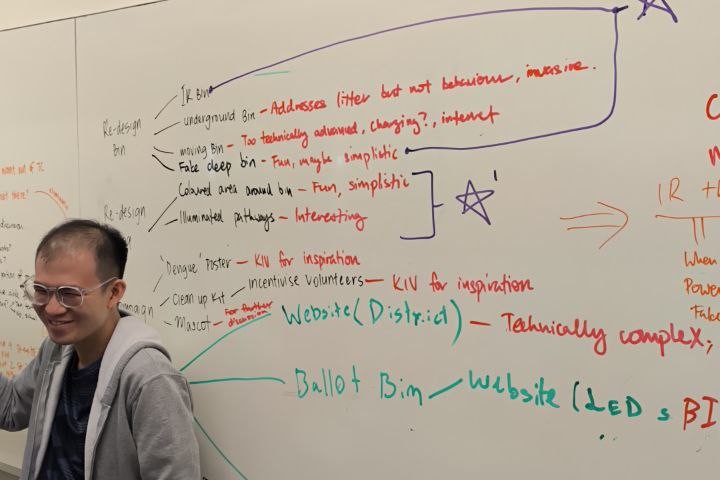 IR Bin
underground Bin - Addresses litter but not behaviour, invasive.
Re-design
Bin
moving Bin - Too technically advanced, charging?, internet
Fake deep bin - Fun, maybe simplistic
Coloured area around bin - Fun, simplistic
Re-design
Illuminated pathways - Interesting
1
IR +
When
Power
Fake
'Dengue' Poster - KIV for inspiration
Clean up Kit - Incentivise Volunteers - KIV for inspiration
Mascot - For further
discussion
Website (District) - Technically complex,
Ballot Bin - Website (LED s BI
want out of TC